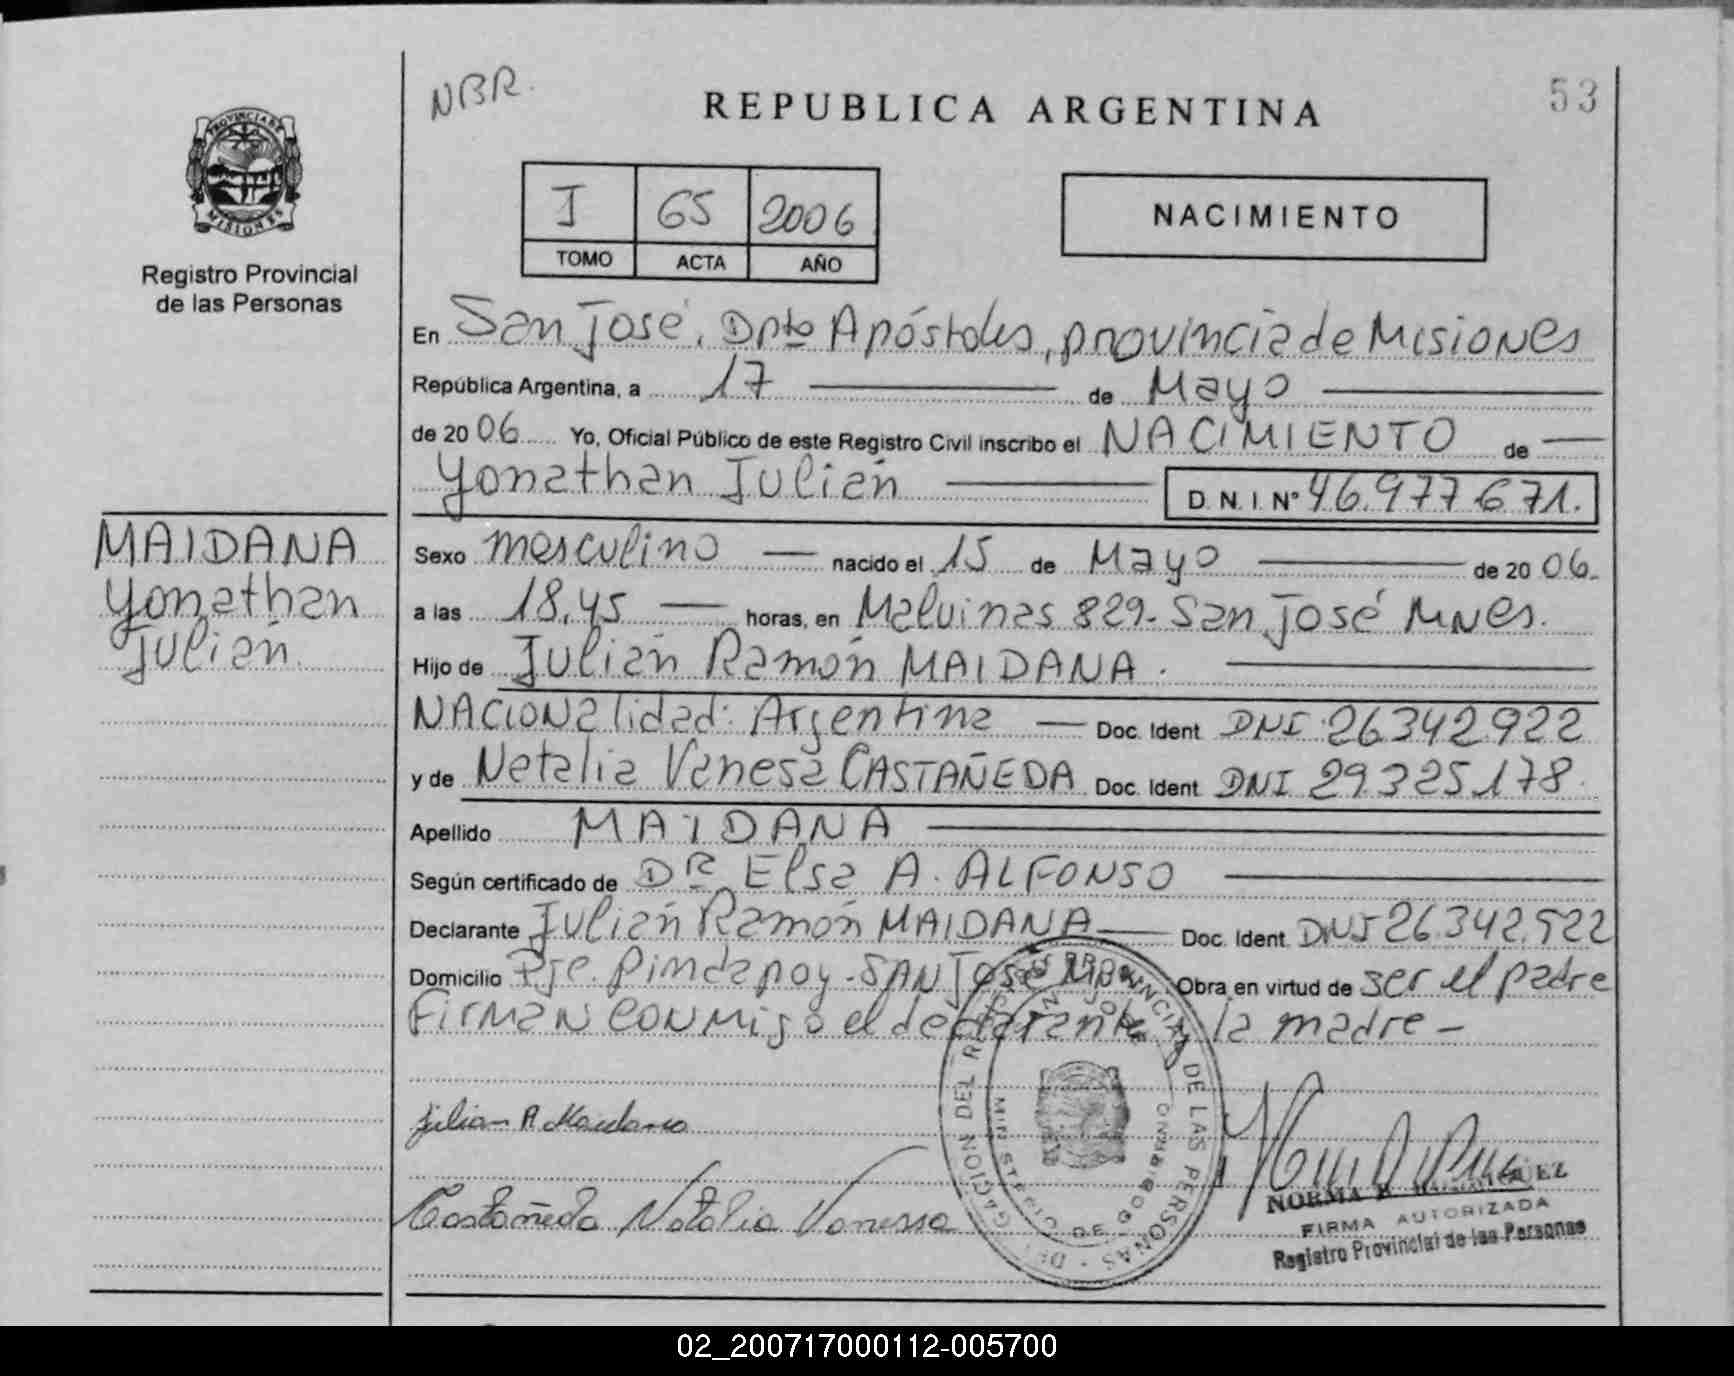 NBR.
REPUBLICA ARGENTINA
53
PROVINCIA DE
MISIONES
Registro Provincial
de las Personas
I 65 2006
TOMO ACTA AÑO
NACIMIENTO
En San José, Dpto Apóstoles, provincia de Misiones
República Argentina, a 17 de Mayo
de 20 06 Yo, Oficial Público de este Registro Civil inscribo el NACIMIENTO de
Yonathan Julián
D. N. I. N° 46.977.671.
MAIDANA
Yonathan
Julián.
Sexo masculino nacido el 15 de Mayo de 20 06.
a las 18,45 horas, en Malvinas 829- San José Mnes.
Hijo de Julián Ramón MAIDANA.
NACIONalidad: Argentina Doc. Ident DNI 26.342.922
y de Natalia Vanesa CASTAÑEDA Doc. Ident DNI 29.325.178.
Apellido MAIDANA
Según certificado de DRA Elsa A. ALFONSO
Declarante Julián Ramón MAIDANA Doc. Ident. DNI 26.342.922
Domicilio Pje. Pindapoy - SAN José Obra en virtud de ser el padre
Firman conmigo el declarante la madre -
Julian R Maidana
Castañeda Natalia Vanessa
DEL REGISTRO PROVINCIAL DE LAS PERSONAS
SAN JOSE
MINISTERIO DE GOBIERNO
NORMA B.
FIRMA AUTORIZADA
Registro Provincial de las Personas
02_200717000112-005700